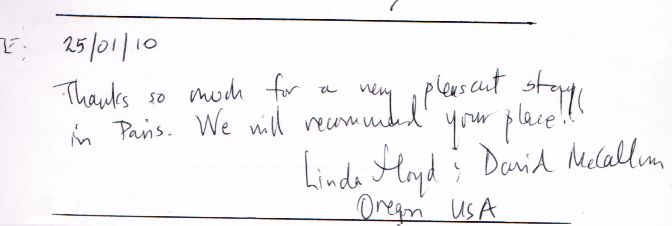 25/01/10
Thanks so much for a very pleasant stay
in Paris. We will recommend your place!!
Linda Floyd & David McCallum
Oregon USA